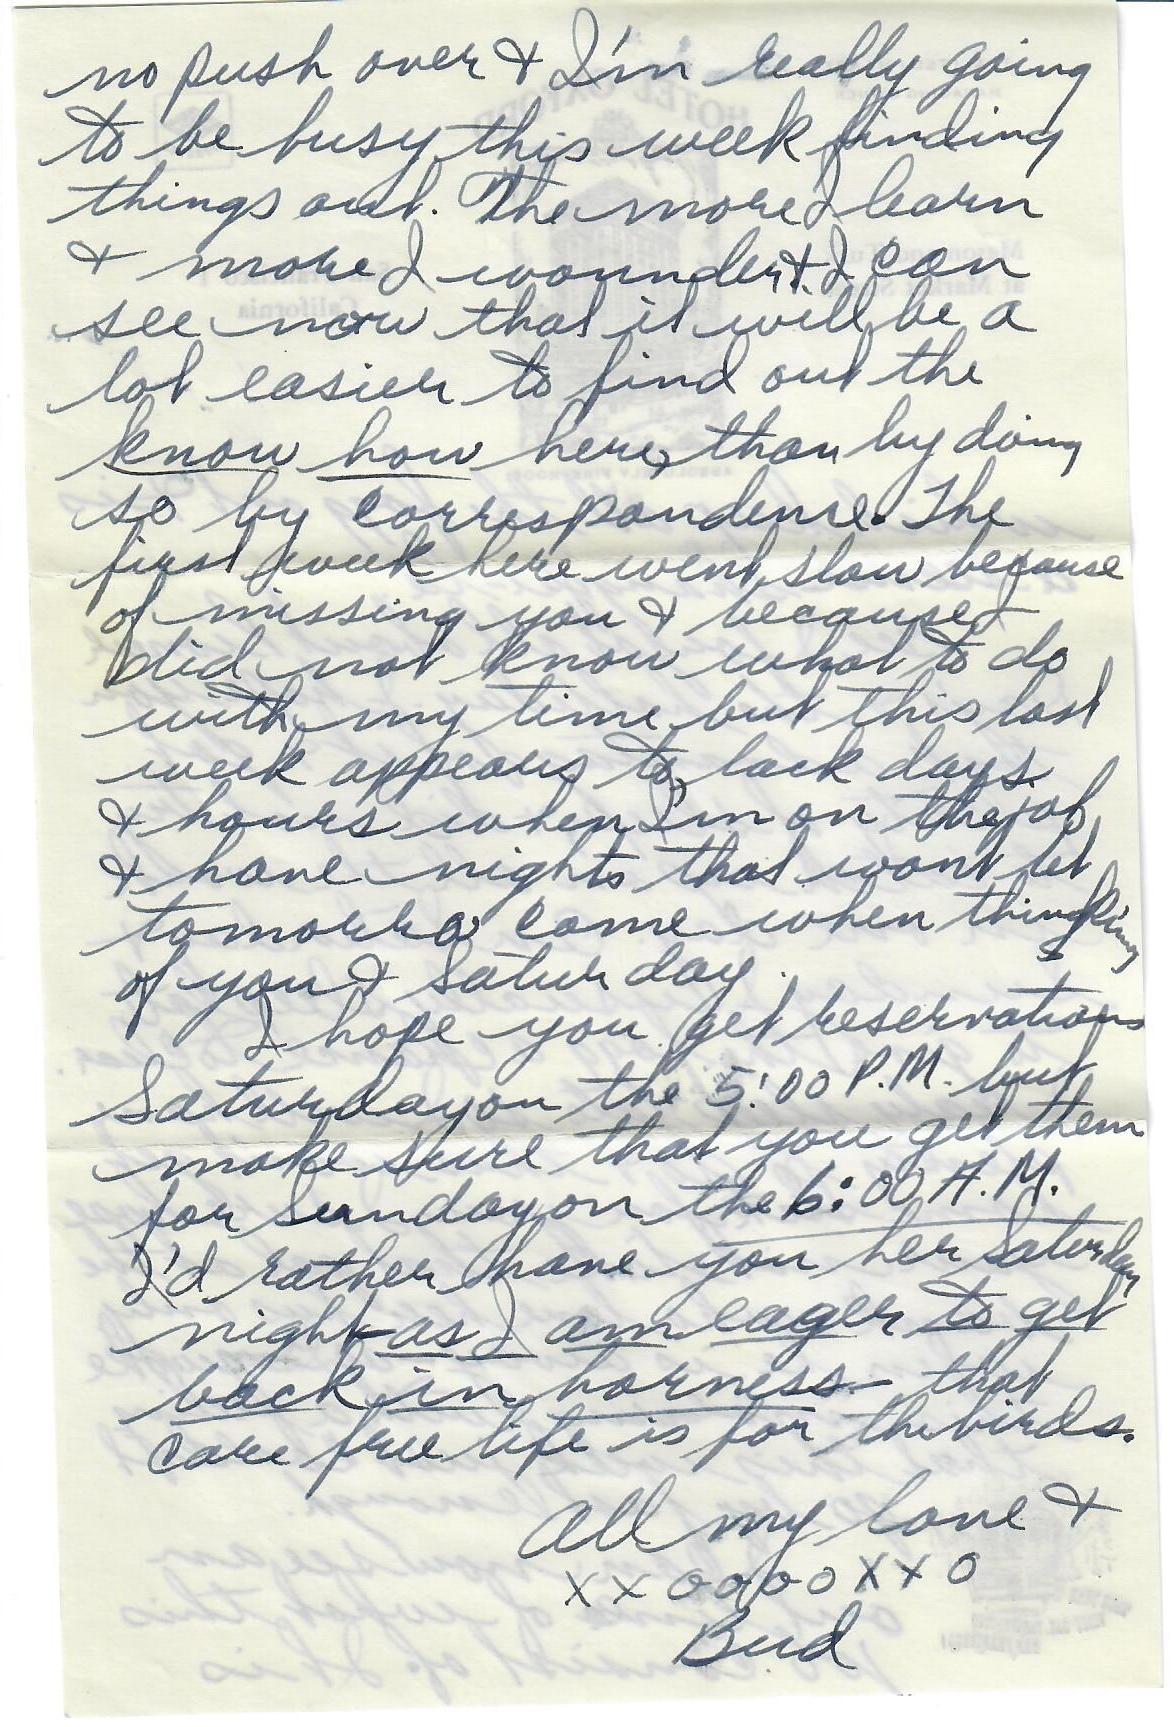 no push over & I'm really going
to be busy this week finding
things out. The more I learn
& more I wounder & I can
see now that it will be a
lot easier to find out the
know how here, than by doing
so by correspondence. The
first week here went slow because
of missing you & because I
did not know what to do
with my time but this last
week appears to lack days
& hours when I'm on the job
& have nights that wont let
tomorro come when thingking
of you & Saturday.
I hope you get reservations
Saturday on the 5:00 P.M. but
make sure that you get them
for Sunday on the 6:00 A.M.
I'd rather have you her Saturday
night as I am eager to get
back in harness - that
care free life is for the birds.
All my love &
X X O O O O X X O
Bud
HOTEL
at Market
California